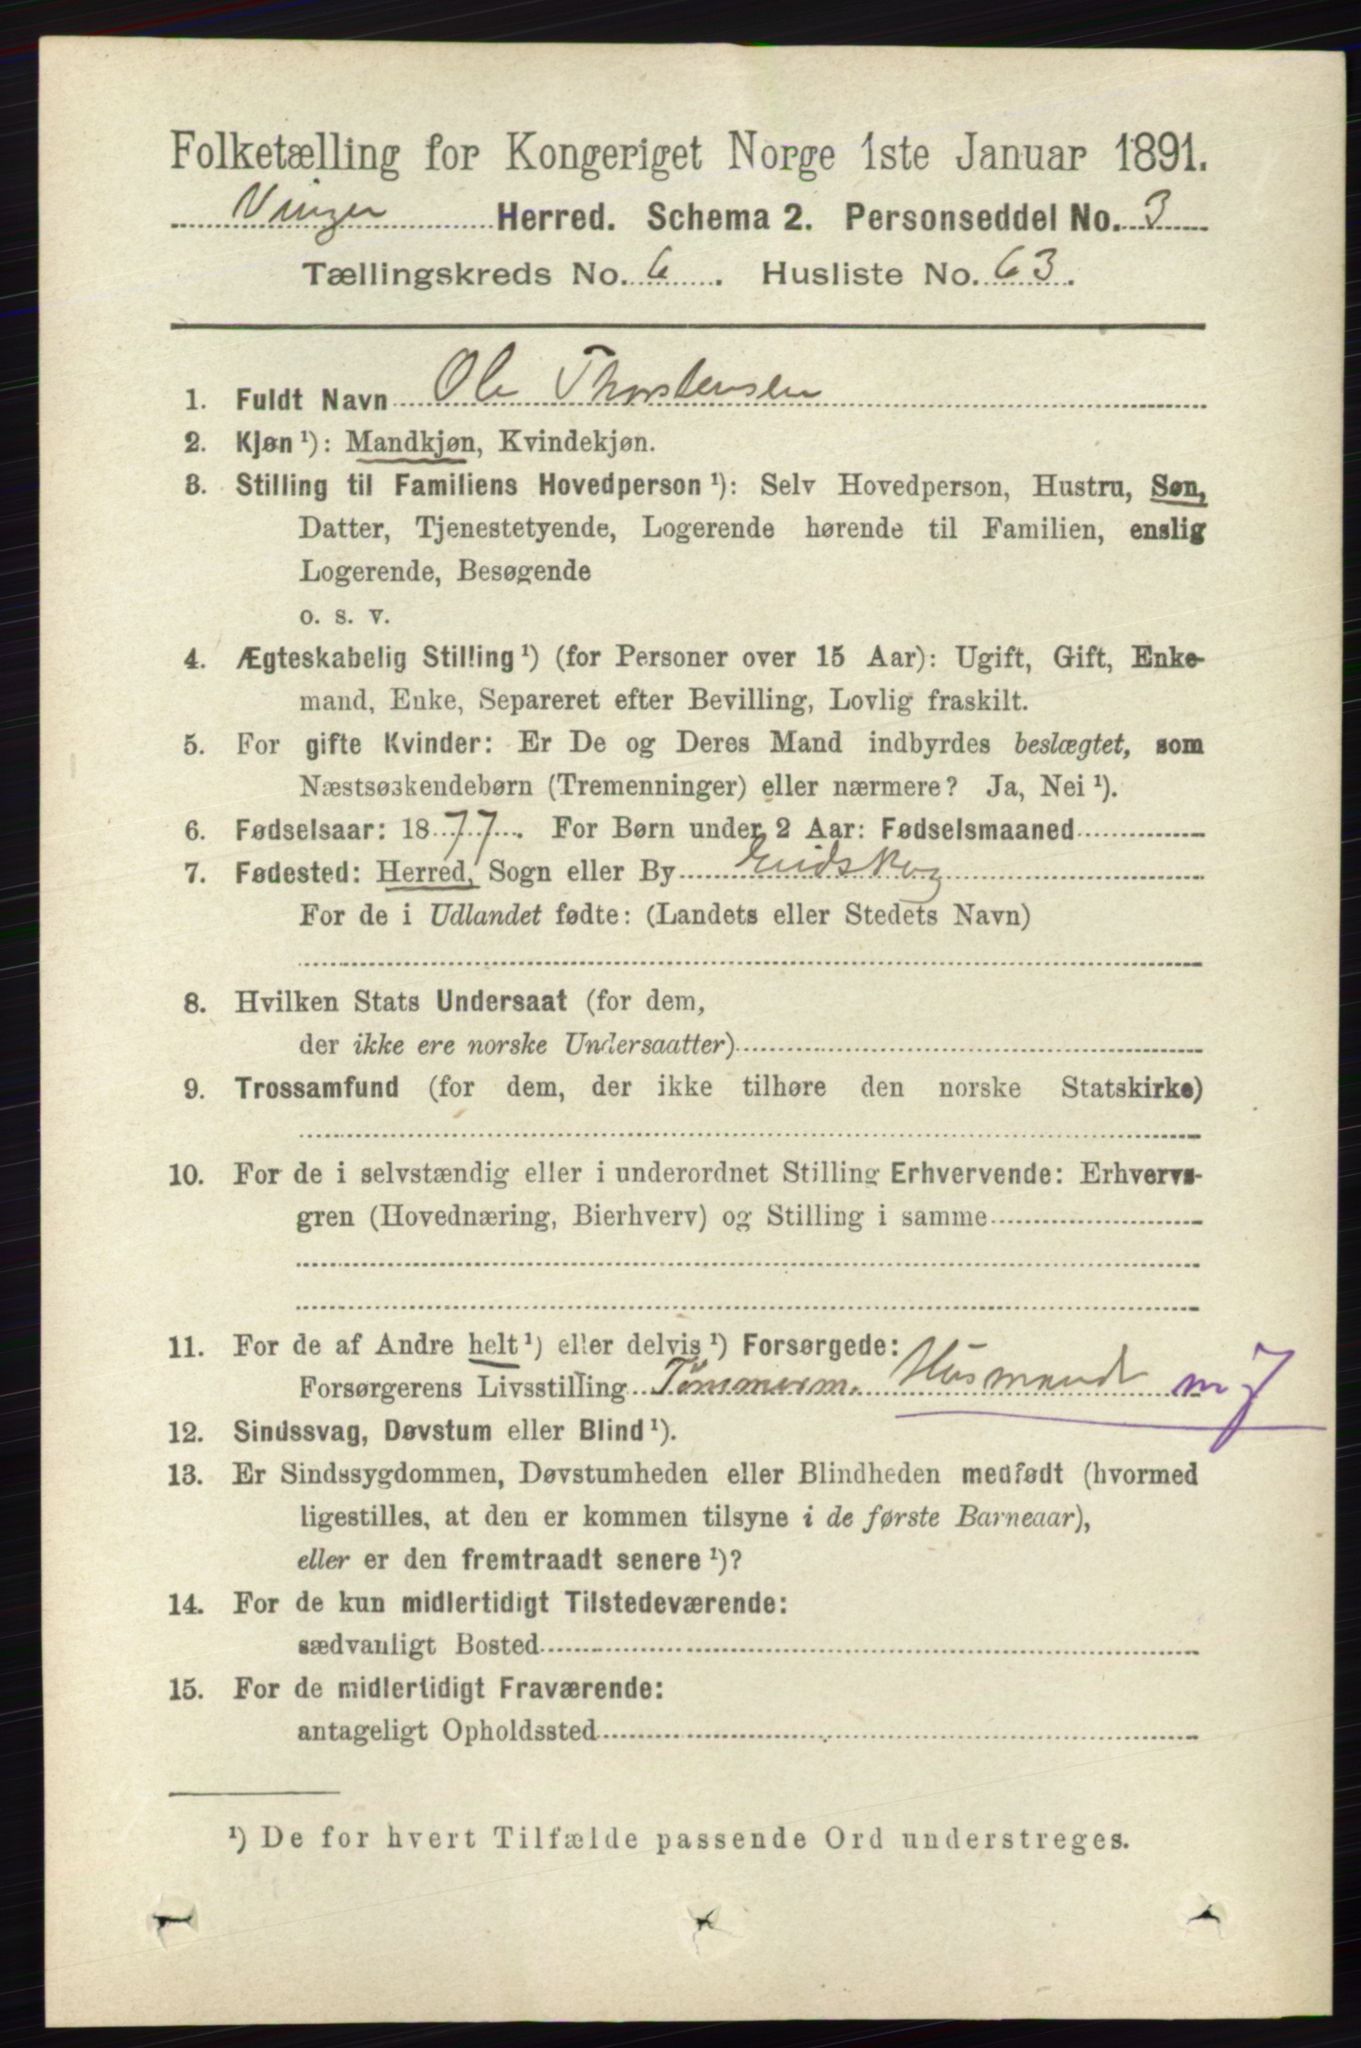 Folketælling for Kongeriget Norge 1ste Januar 1891.
Vinger Herred. Schema 2. Personseddel No. 3
Tællingskreds No. 6. Husliste No. 63.
1. Fuldt Navn Ole Thorstensen
2. Kjøn ¹): Mandkjøn, Kvindekjøn.
3. Stilling til Familiens Hovedperson ¹): Selv Hovedperson, Hustru, Søn,
Datter, Tjenestetyende, Logerende hørende til Familien, enslig
Logerende, Besøgende
o. s. v.
4. Ægteskabelig Stilling ¹) (for Personer over 15 Aar): Ugift, Gift, Enke-
mand, Enke, Separeret efter Bevilling, Lovlig fraskilt.
5. For gifte Kvinder: Er De og Deres Mand indbyrdes beslægtet, som
Næstsøskendebørn (Tremenninger) eller nærmere? Ja, Nei ¹).
6. Fødselsaar: 1877. For Børn under 2 Aar: Fødselsmaaned
7. Fødested: Herred, Sogn eller By Eidskog
For de i Udlandet fødte: (Landets eller Stedets Navn)
8. Hvilken Stats Undersaat (for dem,
der ikke ere norske Undersaatter)
9. Trossamfund (for dem, der ikke tilhøre den norske Statskirke)
10. For de i selvstændig eller i underordnet Stilling Erhvervende: Erhvervs-
gren (Hovednæring, Bierhverv) og Stilling i samme
11. For de af Andre helt ¹) eller delvis ¹) Forsørgede:
Forsørgerens Livsstilling Tømmerm. Husmand m J
12. Sindssvag, Døvstum eller Blind ¹).
13. Er Sindssygdommen, Døvstumheden eller Blindheden medfødt (hvormed
ligestilles, at den er kommen tilsyne i de første Barneaar),
eller er den fremtraadt senere ¹)?
14. For de kun midlertidigt Tilstedeværende:
sædvanligt Bosted
15. For de midlertidigt Fraværende:
antageligt Opholdssted
¹) De for hvert Tilfælde passende Ord understreges.